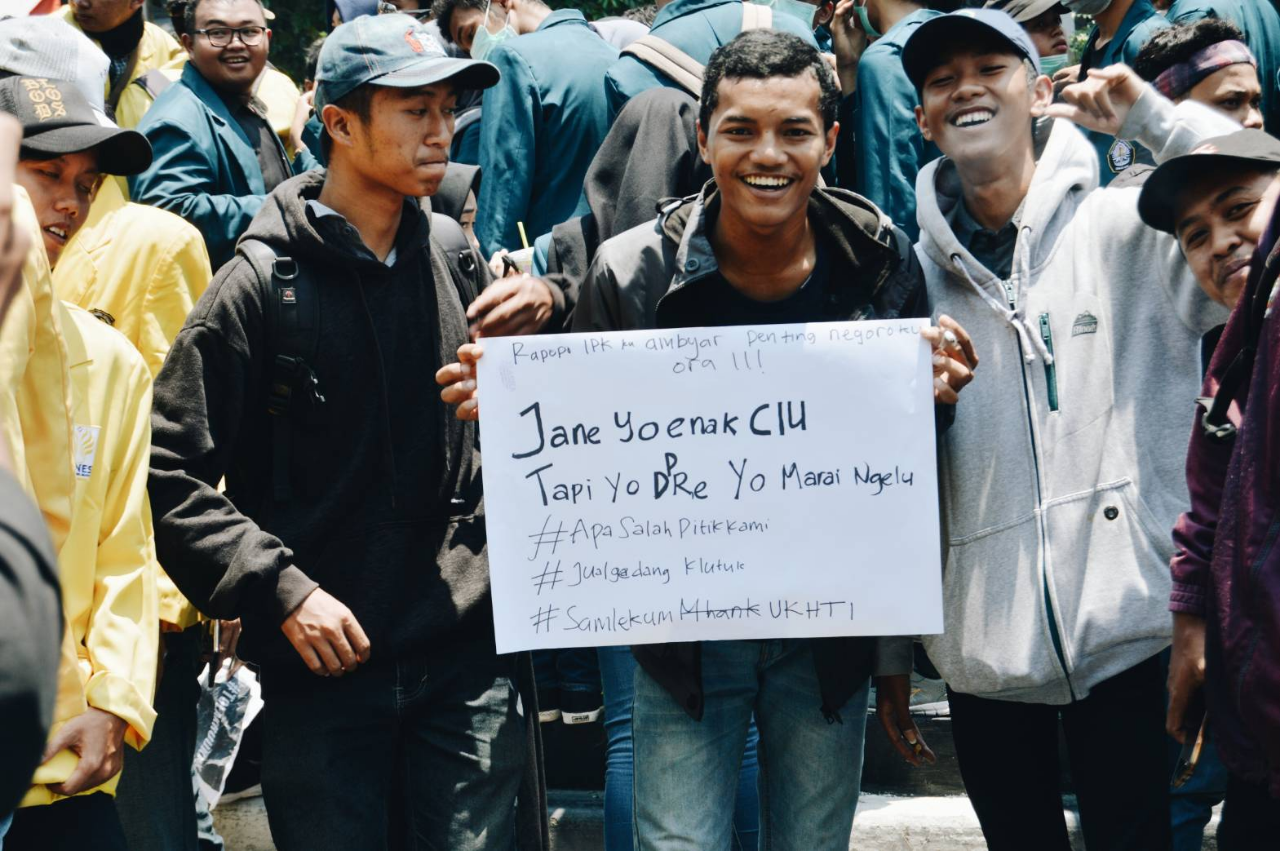 Rapopo IPK ku ambyar penting negoroku
ora !!!
Jane Yo enak CIU
Tapi Yo DPRe Yo Marai Ngelu
#ApaSalahPitikkami
#Jualgedang Klutuk
#Samlekum Mhank UKHTI